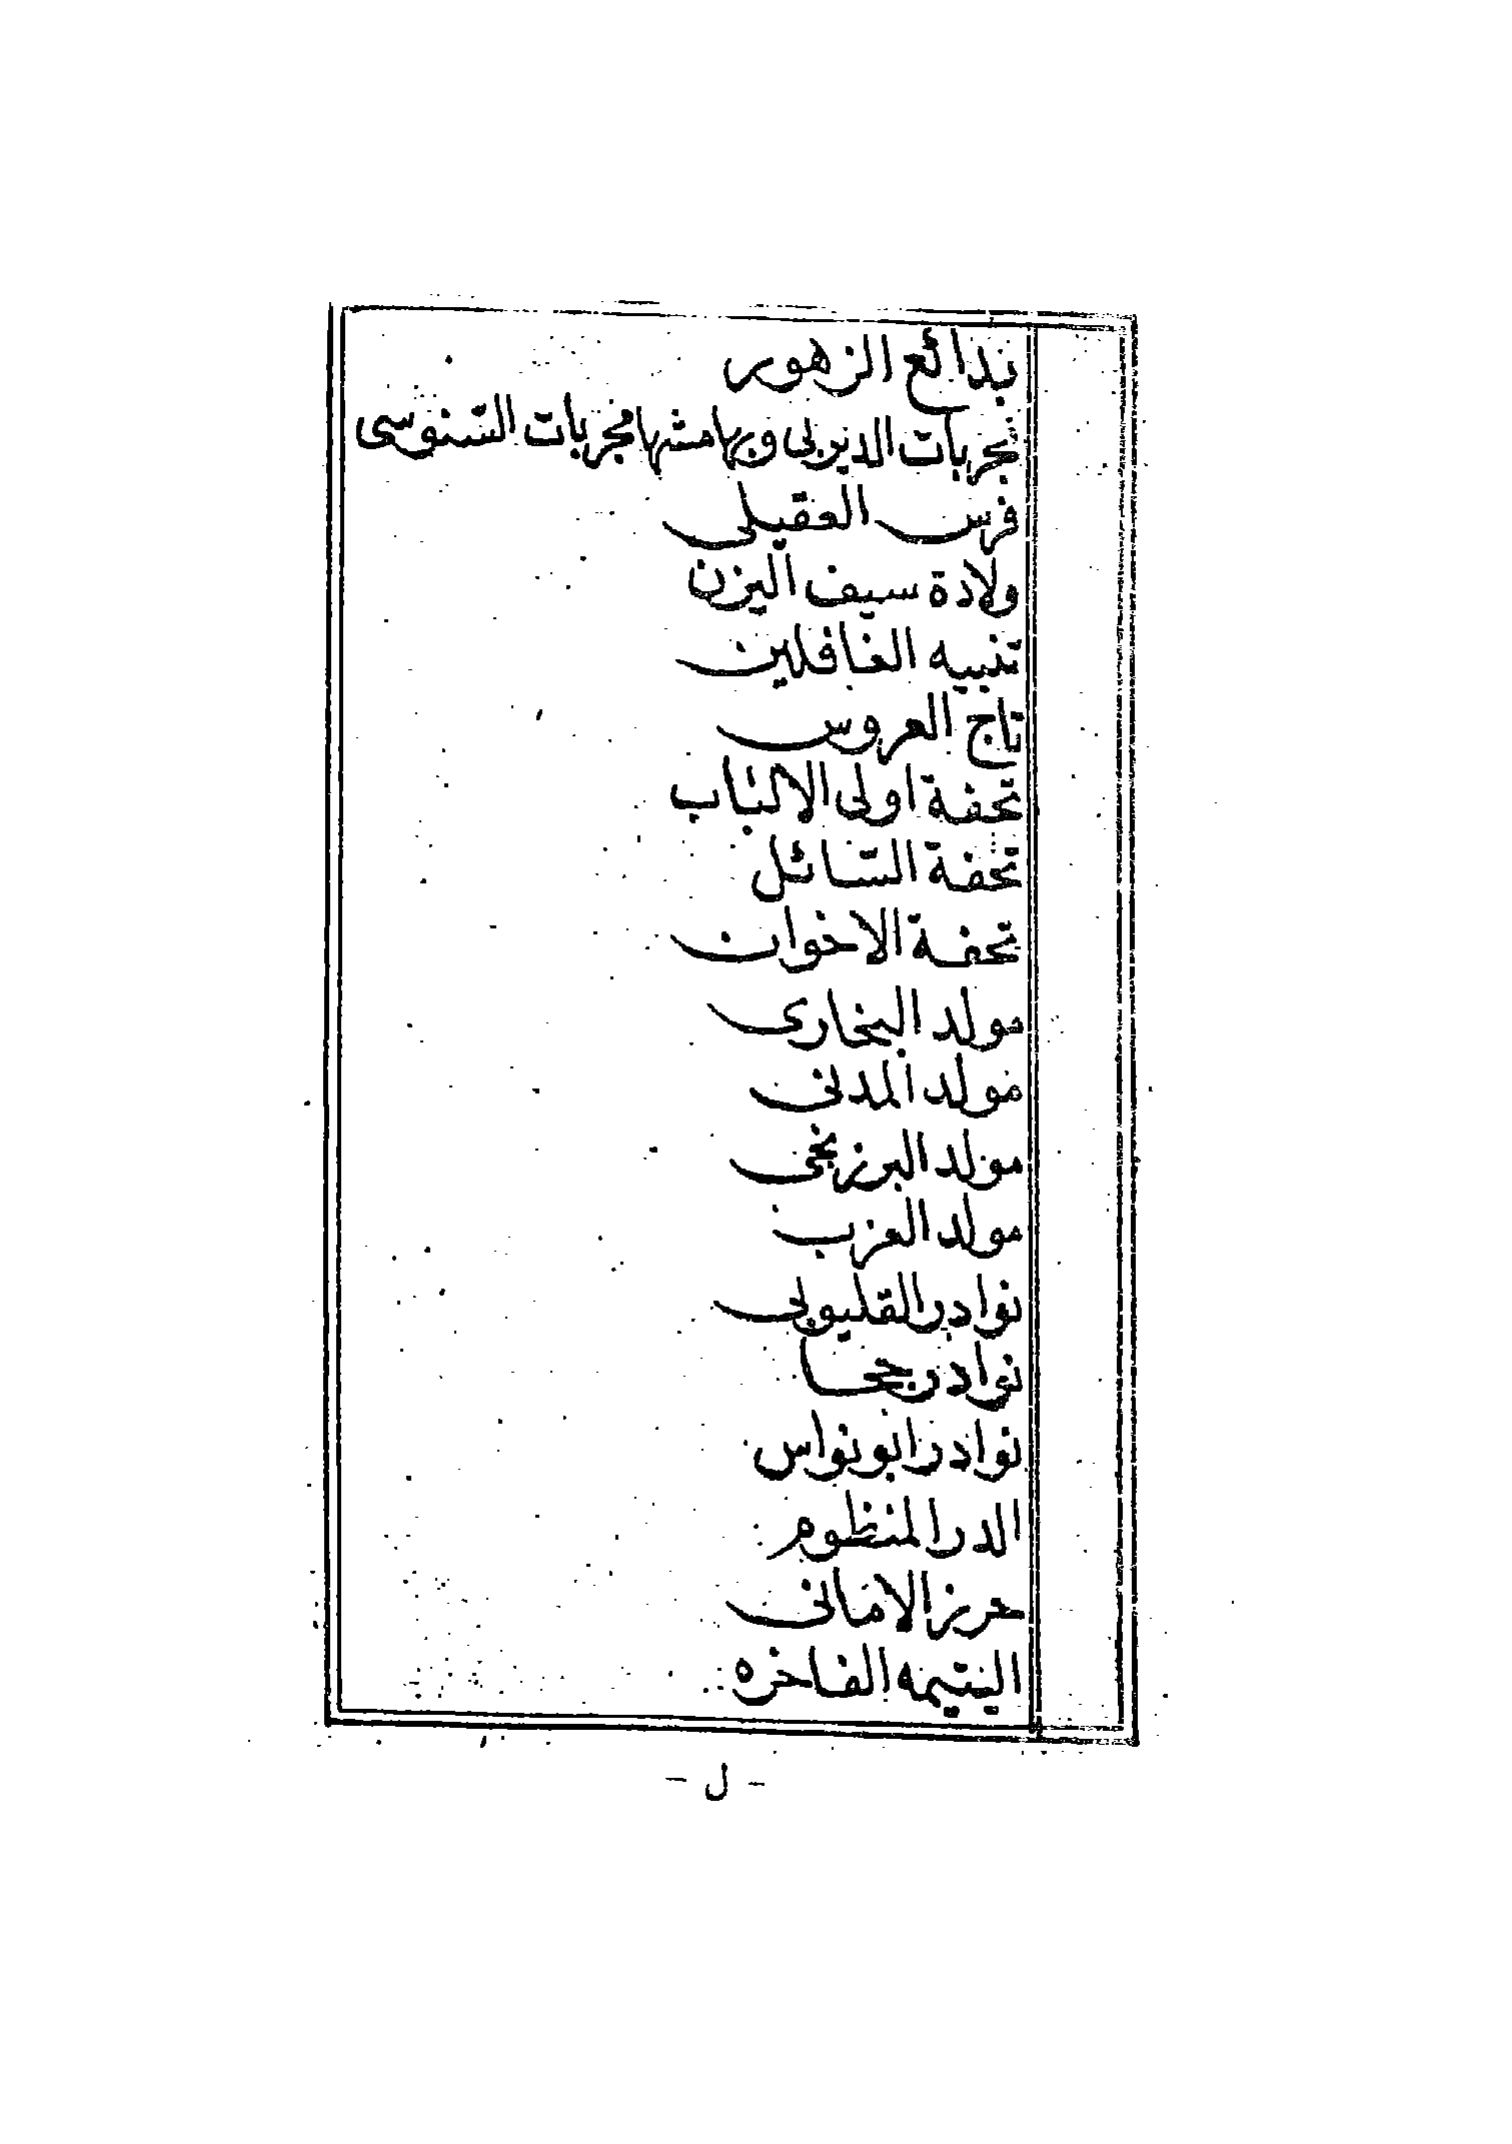 بدائع الزهور
مجربات الديربى وبهامشها مجربات السّنوسى
فرس العقيلى
ولادة سيف اليزن
تنبيه الغافلين
تاج العروس
تحفة اولى الالباب
تحفة السّائل
تحفة الاخوان
مولد البخارى
مولد المدنى
مولد البرزنجى
مولد العزب
نوادر القليوبى
نوادر جحا
نوادر ابو نواس
الدر المنظوم
حرز الامانى
اليتيمه الفاخره
- ل -